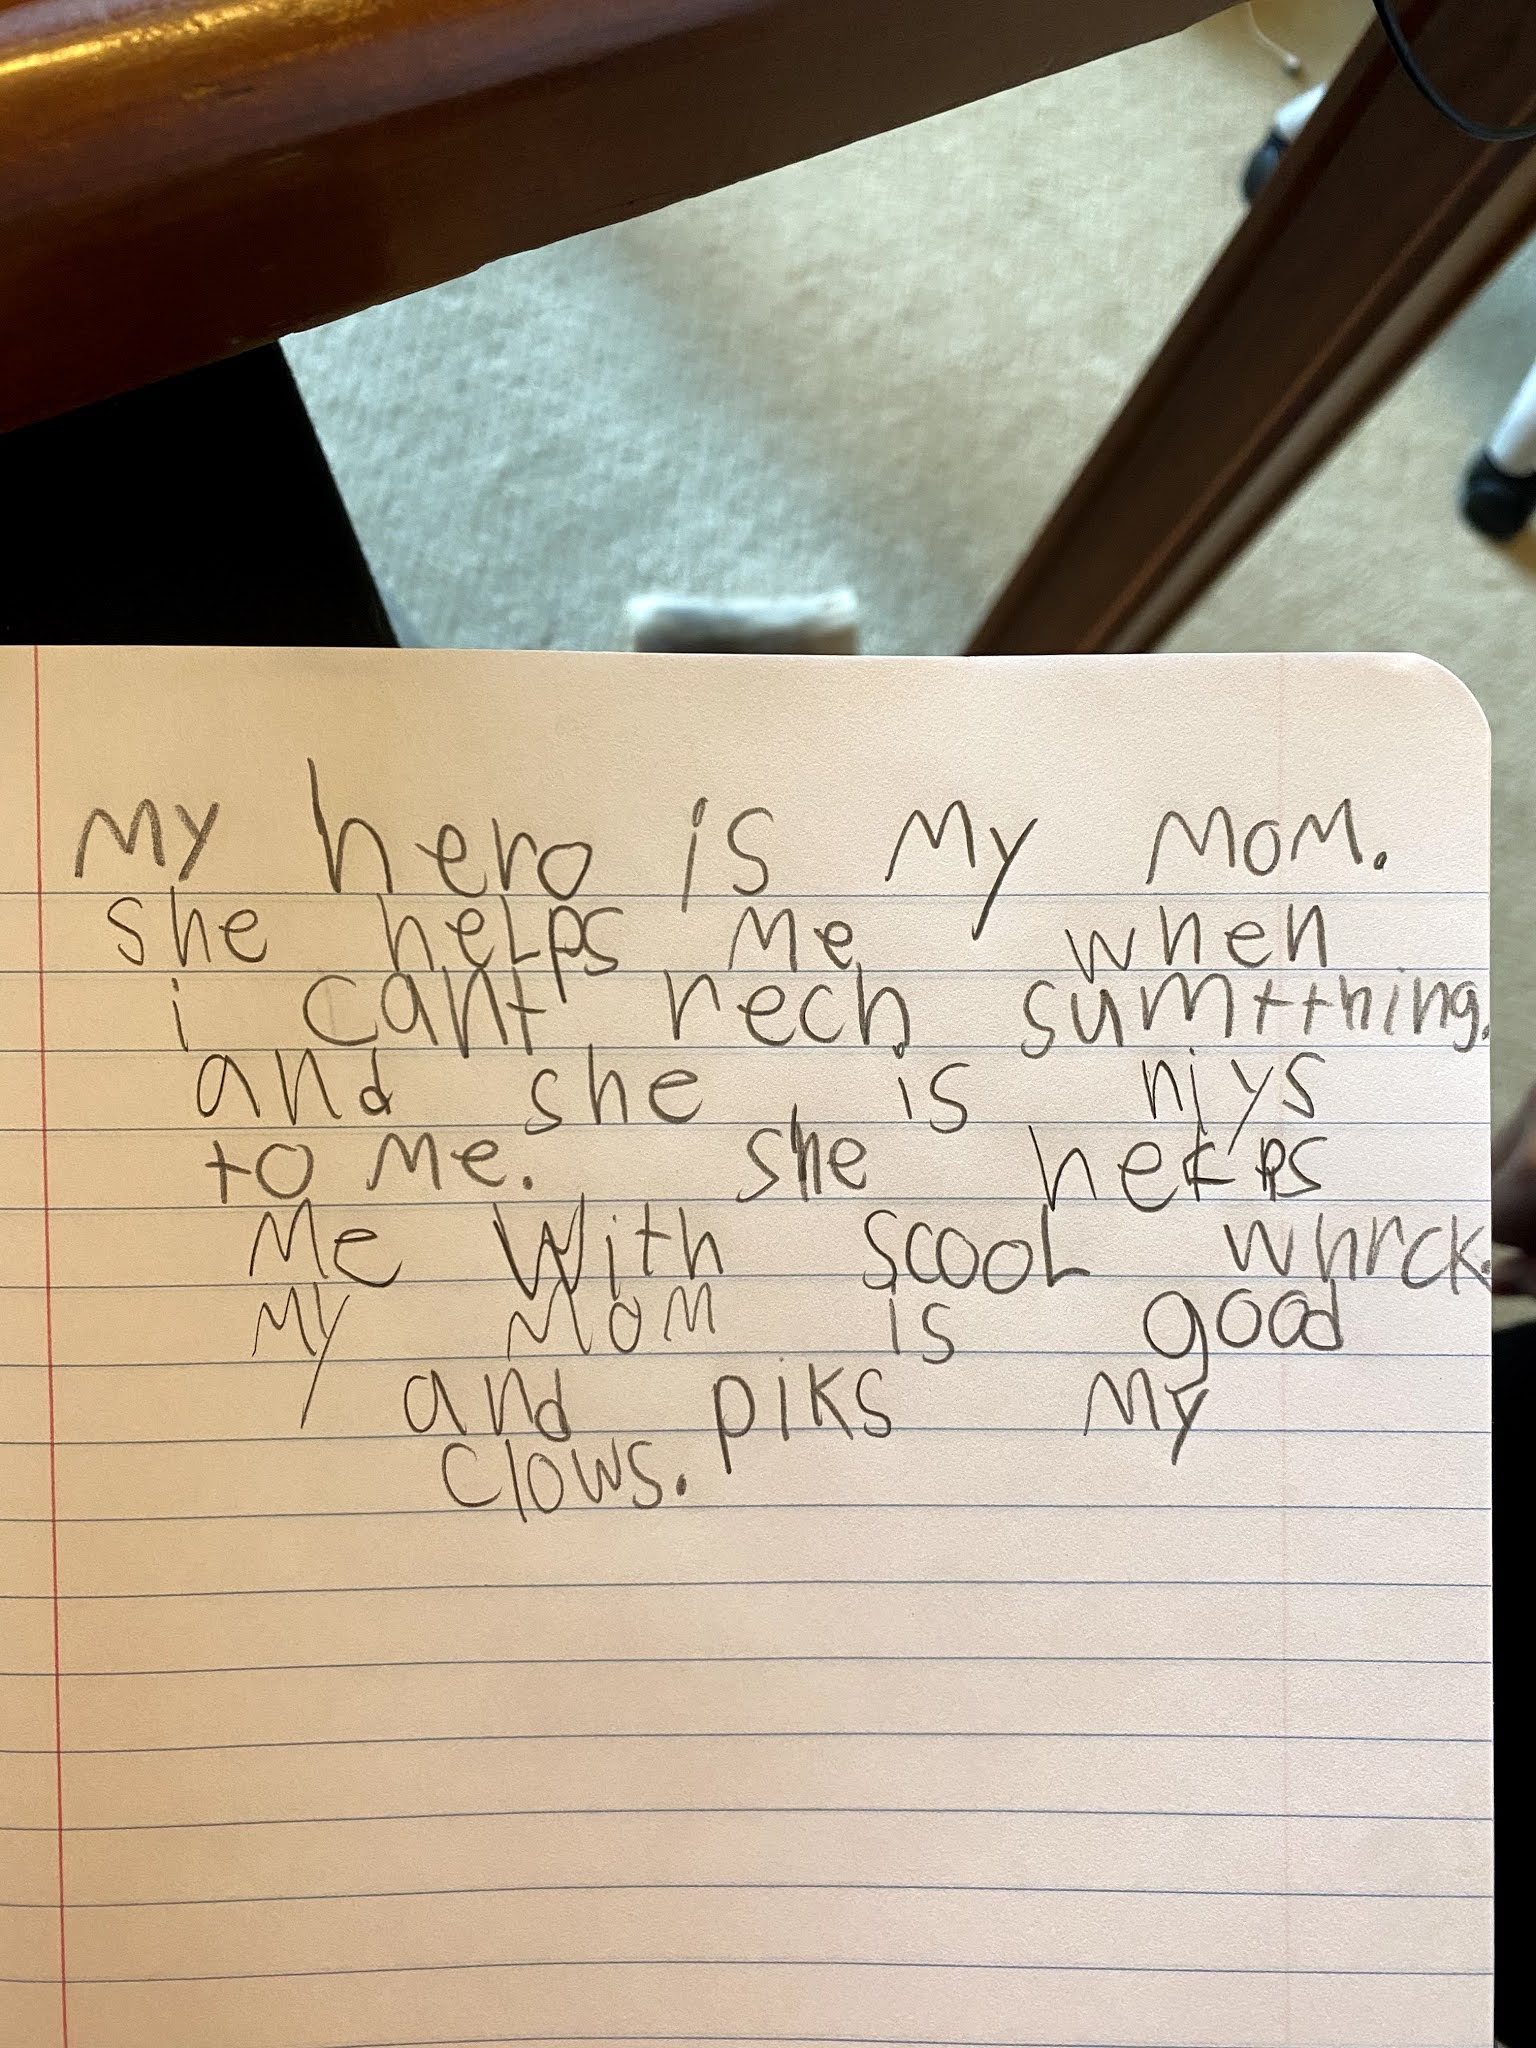 My hero is My MoM.
she heLps Me when
i cant rech sumtthing.
and she is niys
to Me. she heLps
Me With scooL whrck.
My MoM is good
and piks My
Clows.